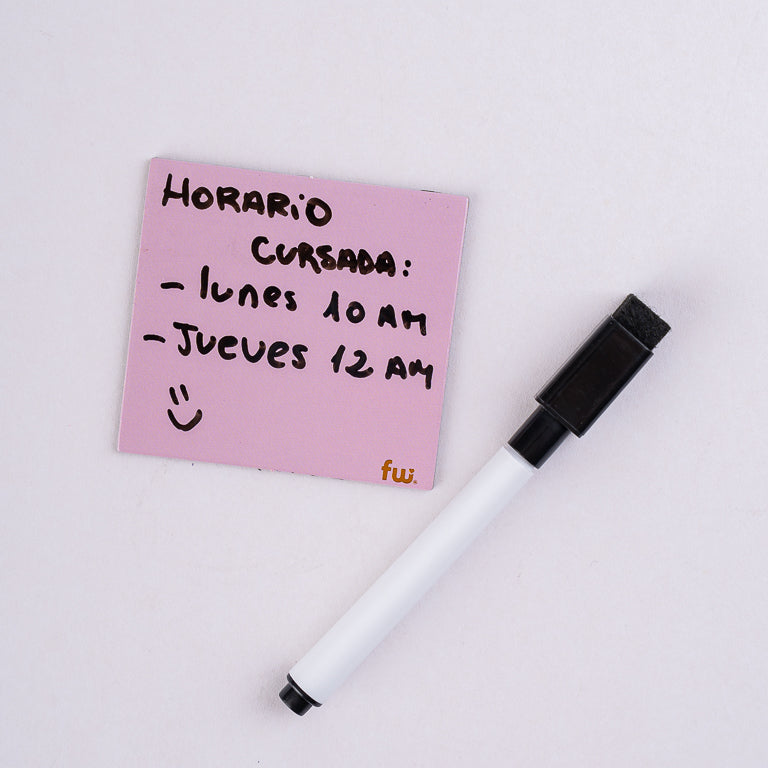 HORARIO
CURSADA:
- lunes 10 AM
- Jueves 12 AM
fw